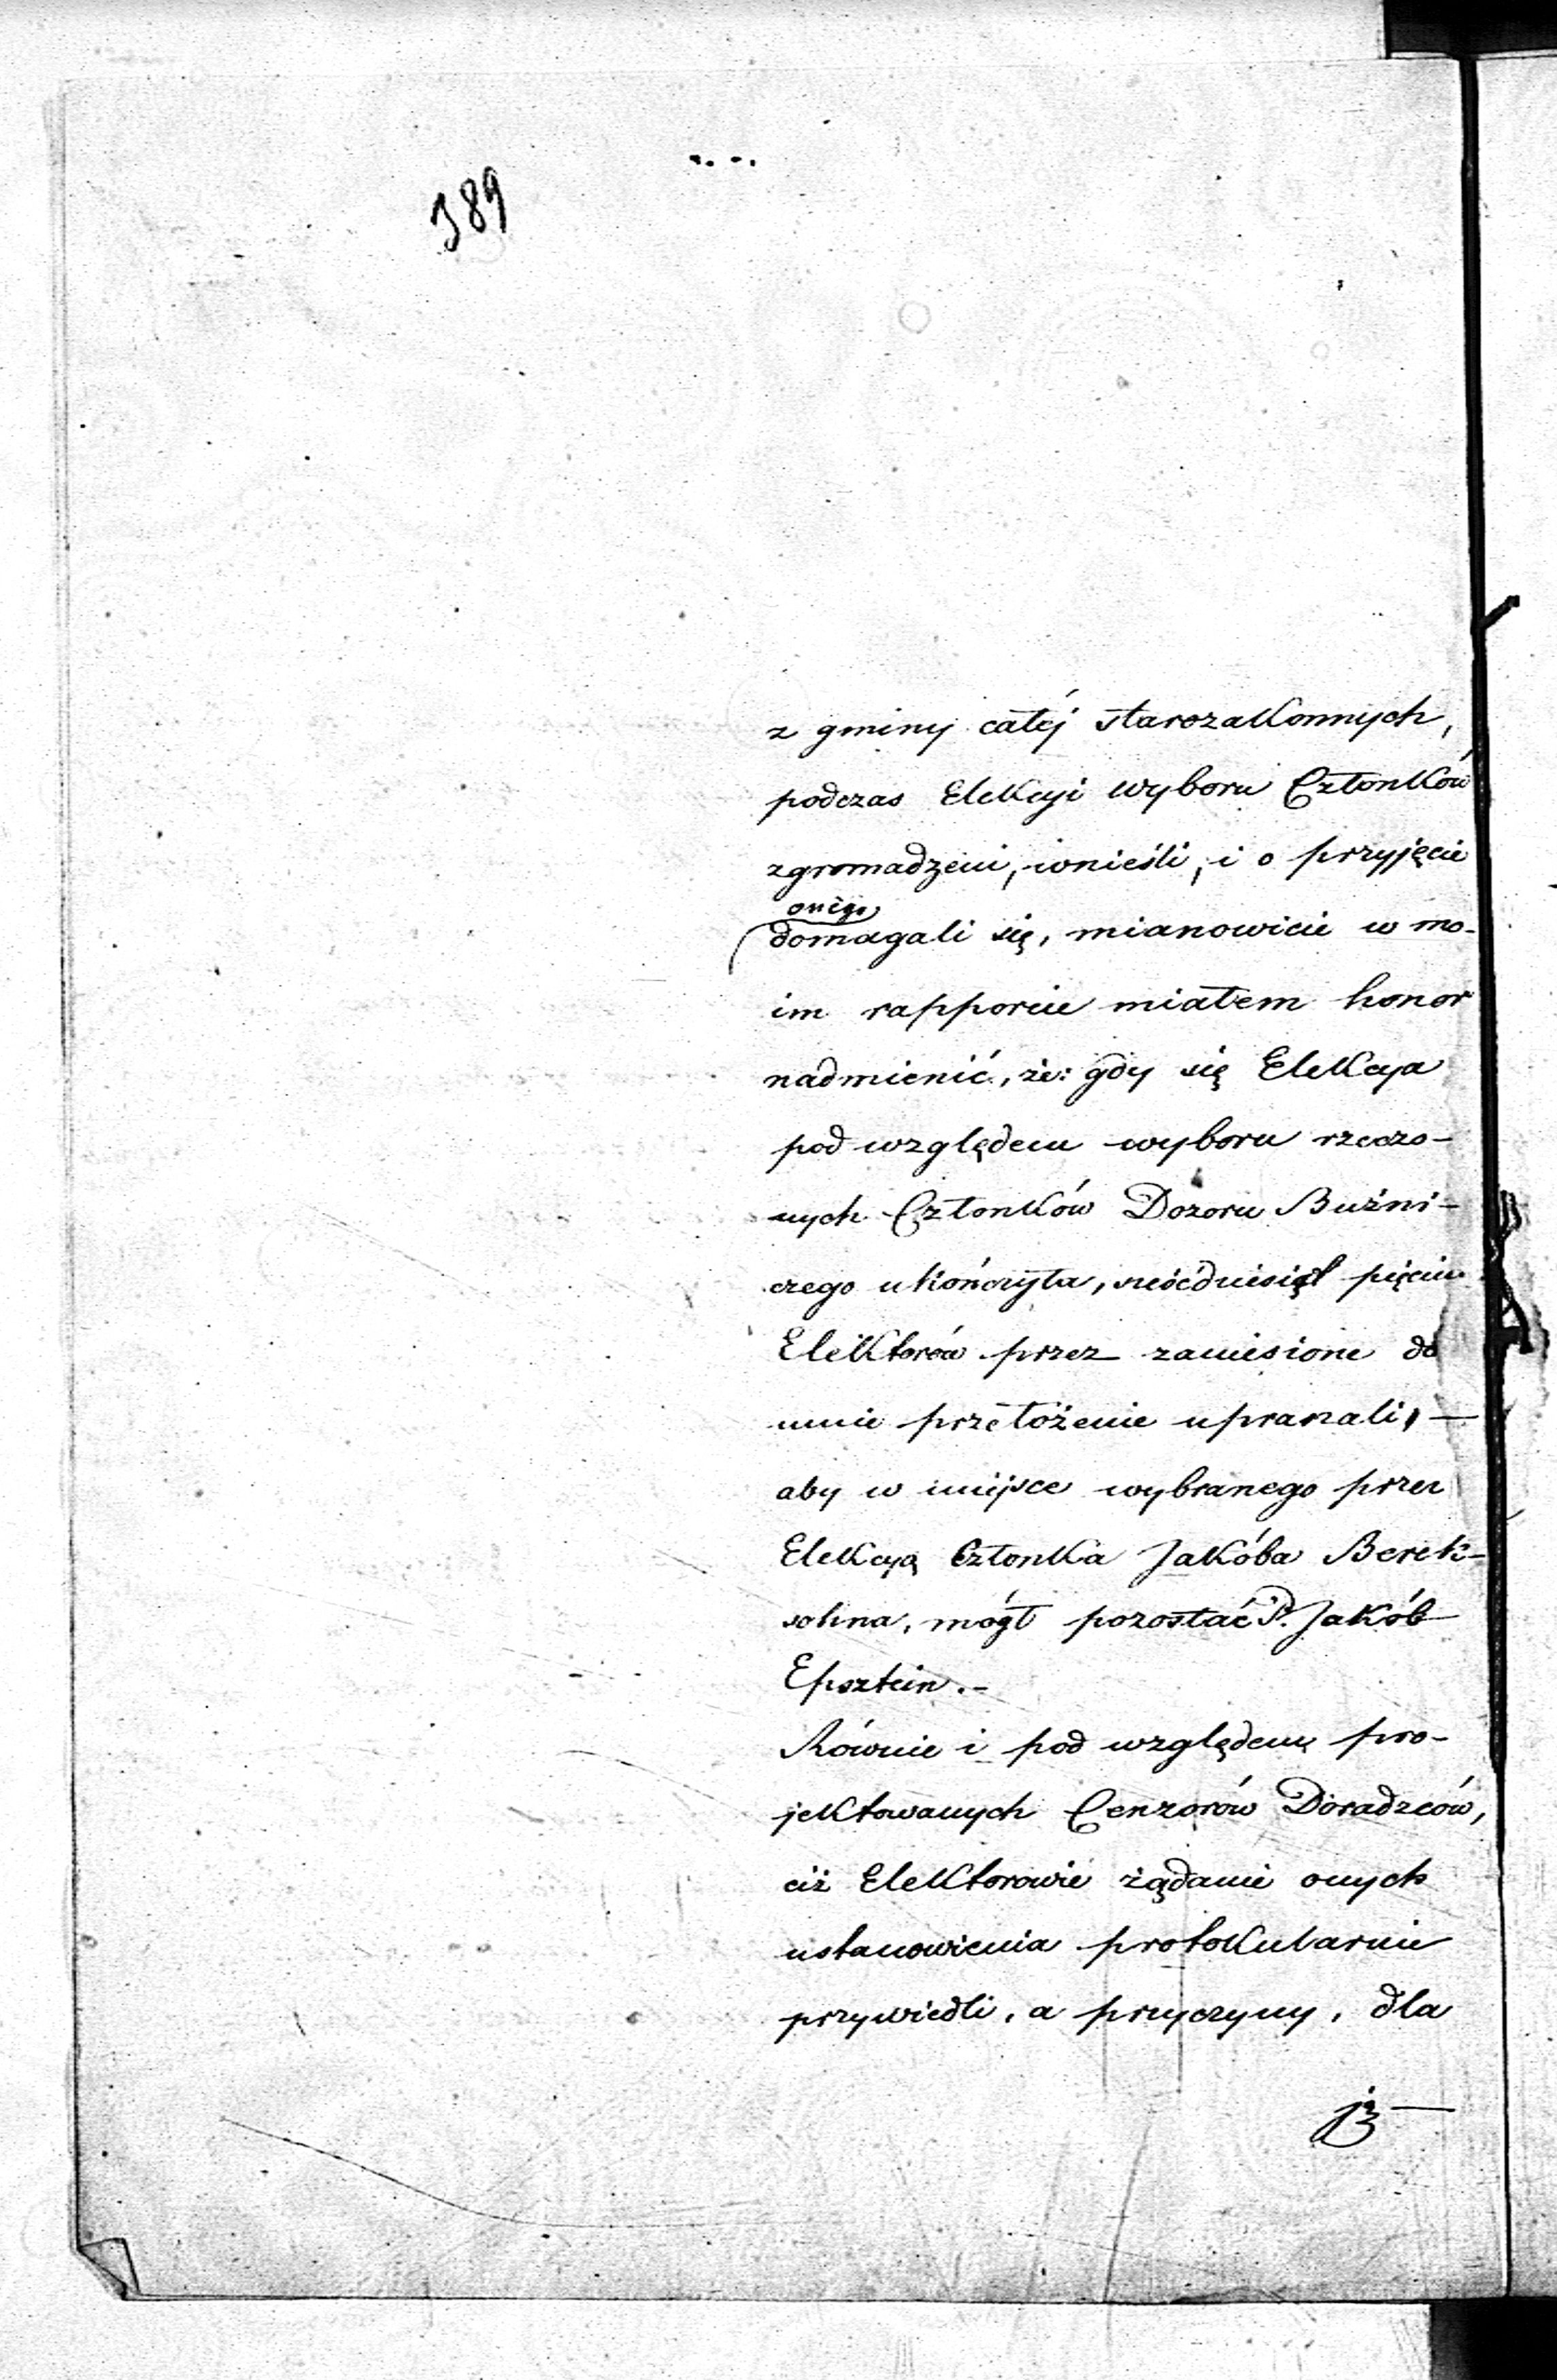 389
z gminy całéj starozakonnych,
podczas Elekcyi wyboru Członków
zgromadzeni, wnieśli, i o przyjęcie
onego
domagali się, mianowicie w mo-
im rapporcie miałem honor
nadmienić, że: gdy się Elekcya
pod względem wyboru rzeczo-
nych Członków Dozoru Buźni-
czego ukończyła, sześćdziesiąt pięciu
Elektorów przez zaniesione do
mnie przełożenie upraszali, —
aby w miejsce wybranego przez
Elekcyą Członka Jakóba Berek-
sohna, mógł pozostać P. Jakób
Epsztein.-
Równie i pod względem pro-
jektowanych Cenzorów Doradzców,
ciż Elektorowie żądanie onych
ustanowienia protokularnie
przywiedli, a przyczyny, dla